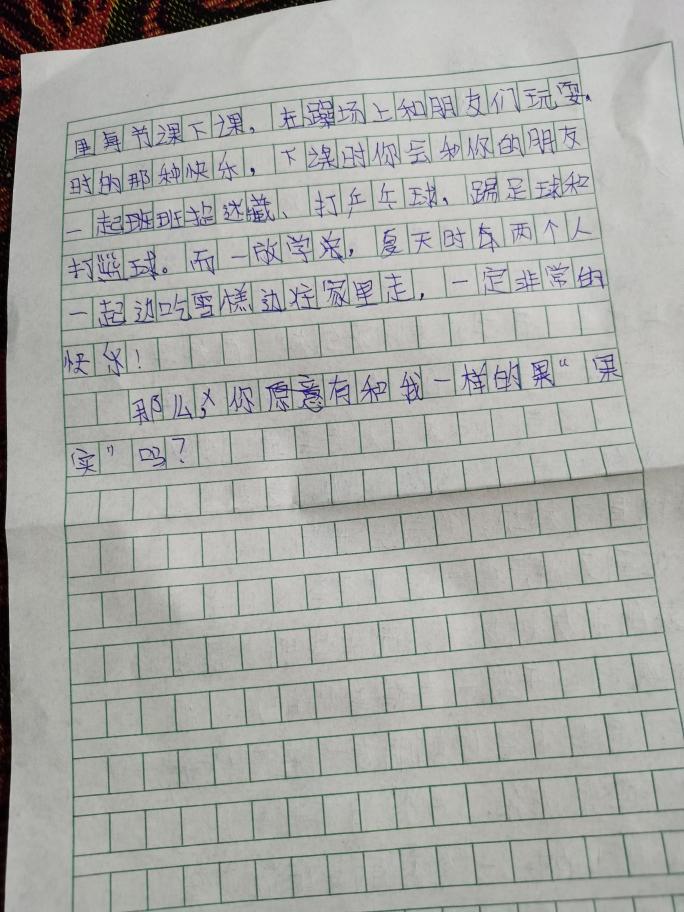 里每节课下课，在躁场上和朋友们玩耍。
时的那种快乐，下课时你会和你的朋友
一起玩捉迷藏、打乒乓球、踢足球和
打篮球。而一放学完，夏天时车两个人
一起边吃雪糕边往家里走，一定非常的
快乐！
那么，你愿意有和我一样的果“果
实”吗？